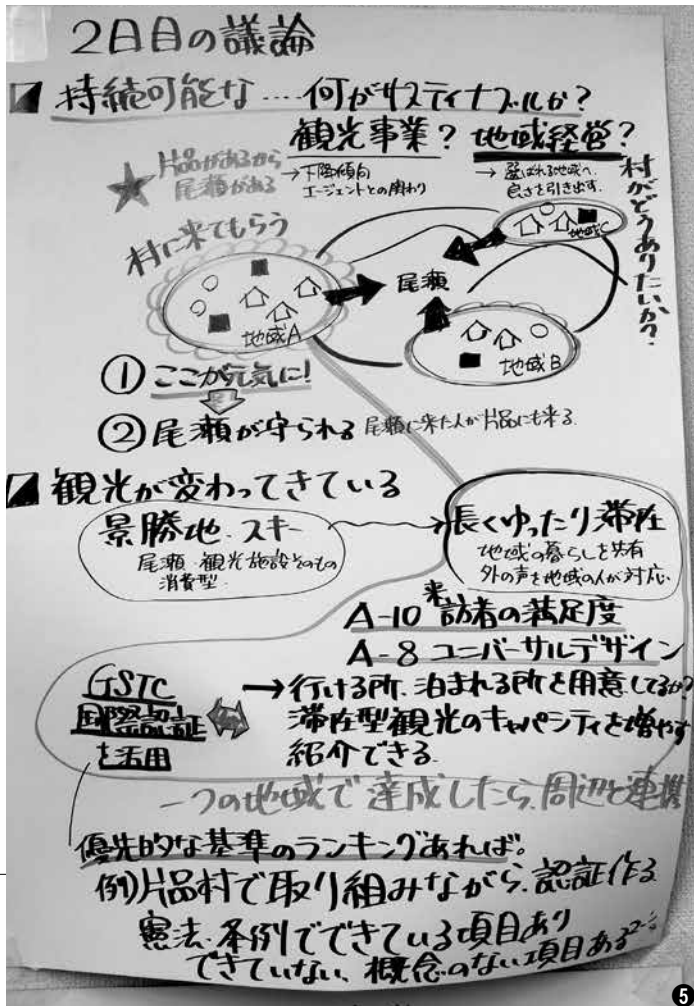 2日目の議論
持続可能な‥‥何がサスティナブルか?
観光事業? 地域経営?
→下降傾向
エージェントとの関わり
→選ばれる地域へ
良さを引き出す.
片品があるから
尾瀬がある
村がどうありたいか?
村に来てもらう
地域A
尾瀬
地域C
地域B
①ここが元気に!
②尾瀬が守られる 尾瀬に来た人が片品にも来る.
観光が変わってきている
景勝地・スキー
尾瀬・観光施設そのもの
消費型
長くゆったり滞在
地域の暮らしを共有
外の声を地域の人が対応.
A-10 来訪者の満足度
A-8 ユニバーサルデザイン
GSTC
国際認証
を活用
→行ける所、泊まれる所を用意してるか?
滞在型観光のキャパシティを増やす
紹介できる.
一つの地域で達成したら、周辺と連携
優先的な基準のランキングあれば。
例)片品村で取り組みながら、認証作る
憲法・条例でできている項目あり
できていない、概念のない項目ある
5